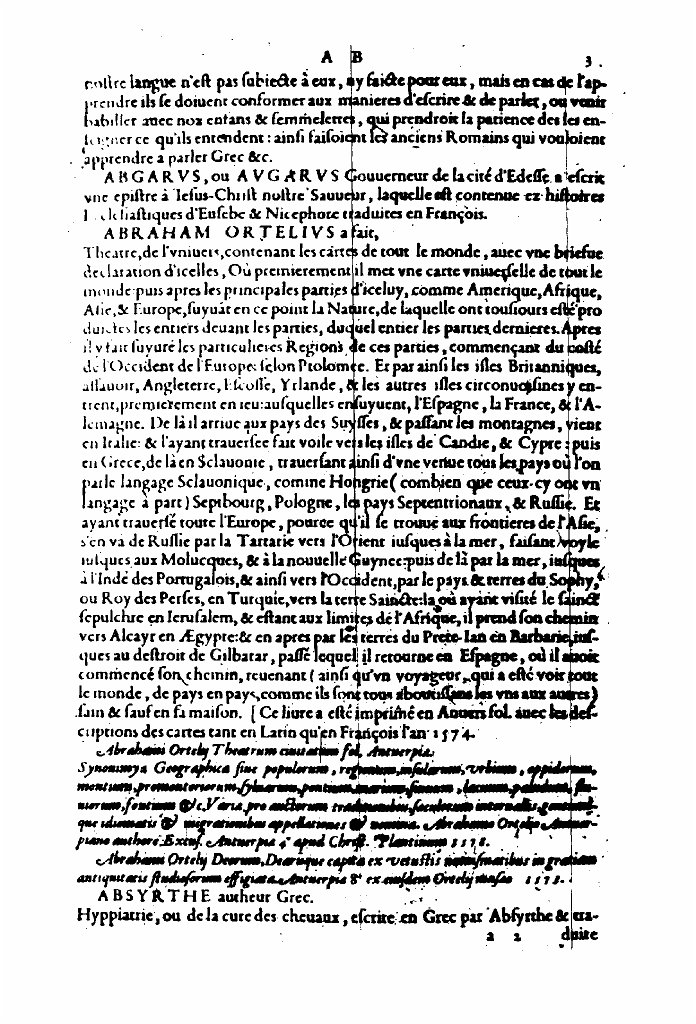 A B 3.
nostre langue n'est pas subiecte à eux, ny faicte pour eux, mais en cas de l'ap-
prendre ils se doiuent conformer aux manieres d'escrire & de parler, ou venir
babiller auec noz enfans & femmelettes, qui prendroit la patience de les en-
seigner ce qu'ils entendent: ainsi faisoient les anciens Romains qui vouloient
apprendre a parler Grec &c.
ABGARVS, ou AVGARVS Gouuerneur de la cité d'Edesse a escrit
vne epistre à Iesus-Christ nostre Sauueur, laquelle est contenue ez histoires
Ecclesiastiques d'Eusebe & Nicephore traduites en François.
ABRAHAM ORTELIVS a fait,
Theatre, de l'vniuers, contenant les cartes de tout le monde, auec vne briefue
declaration d'icelles, Où premierement il met vne carte vniuerselle de tout le
monde: puis apres les principales parties d'iceluy, comme Amerique, Afrique,
Asie, & Europe, suyuãt en ce point la Nature, de laquelle ont tousiours esté pro
duictes les entiers deuant les parties, duquel entier les parties dernieres. Apres
il y fait suyure les particulieres Regions de ces parties, commençant du costé
de l'Occident de l'Europe, selon Ptolomee. Et par ainsi les isles Britanniques,
assauoir, Angleterre, Escosse, Yrlande, & les autres isles circonuoisines y en-
trent, premierement en ieu: ausquelles ensuyuent, l'Espagne, la France, & l'A-
lemagne. De là il arriue aux pays des Suysses, & passant les montagnes, vient
en Italie: & l'ayant trauersee fait voile vers les isles de Candie, & Cypre: puis
en Grece, de là en Sclauonie, trauersant ainsi d'vne venue tous les pays où l'on
parle langage Sclauonique, comme Hongrie (combien que ceux-cy ont vn
langage à part) Septbourg, Pologne, les pays Septentrionaux, & Russie. Et
ayant trauersé toute l'Europe, pource qu'il se trouue aux frontieres de l'Asie,
s'en va de Russie par la Tartarie vers l'Orient iusques à la mer, faisant voyle
iusques aux Molucques, & à la nouuelle Guynee: puis de là par la mer, iusques
à l'Indé des Portugalois, & ainsi vers l'Occident, par le pays & terres du Sophy,
ou Roy des Perses, en Turquie, vers la terre Saincte: la où ayant visité le sainct
sepulchre en Ierusalem, & estant aux limites de l'Afrique, il prend son chemin
vers Alcayr en Ægypte: & en apres par les terres du Prete-Ian en Barbarie, ius-
ques au destroit de Gilbatar, passé lequel il retourne en Espagne, où il auoit
commencé son chemin, reuenant (ainsi qu'vn voyageur, qui a esté voir tout
le monde, de pays en pays, comme ils sont tous aboutissans les vns aux autres)
sain & sauf en sa maison. [Ce liure a esté imprimé en Anuers fol. auec les des-
criptions des cartes tant en Latin qu'en François l'an 1574.
Abrahami Ortelij Theatrum ciuitatum fol. Antuerpiæ.
Synonymia Geographica siue populorum, regionum, insularum, vrbium, oppidorum,
montium, promontoriorum, syluarum, pontium, marium, sinuum, lacuum, paludum, flu-
uiorum, fontium &c. Varia, pro auctorum traditionibus, sæculorum interuallis,
que idiomatis & migrationibus appellationes & nomina. Abrahamo Ortelio Antuer-
piano authore. Excus. Antuerpiæ 4° apud Christ. Plantinum 1578.
Abrahami Ortelij Deorum, Dearumque capita ex vetustis numismatibus in gratiam
antiquitatis studiosorum effigiata. Antuerpiæ 8° ex eiusdem Ortelij musæo 1573.
ABSYRTHE autheur Grec.
Hyppiatrie, ou de la cure des cheuaux, escrite en Grec par Absyrthe & tra-
a 2 duite